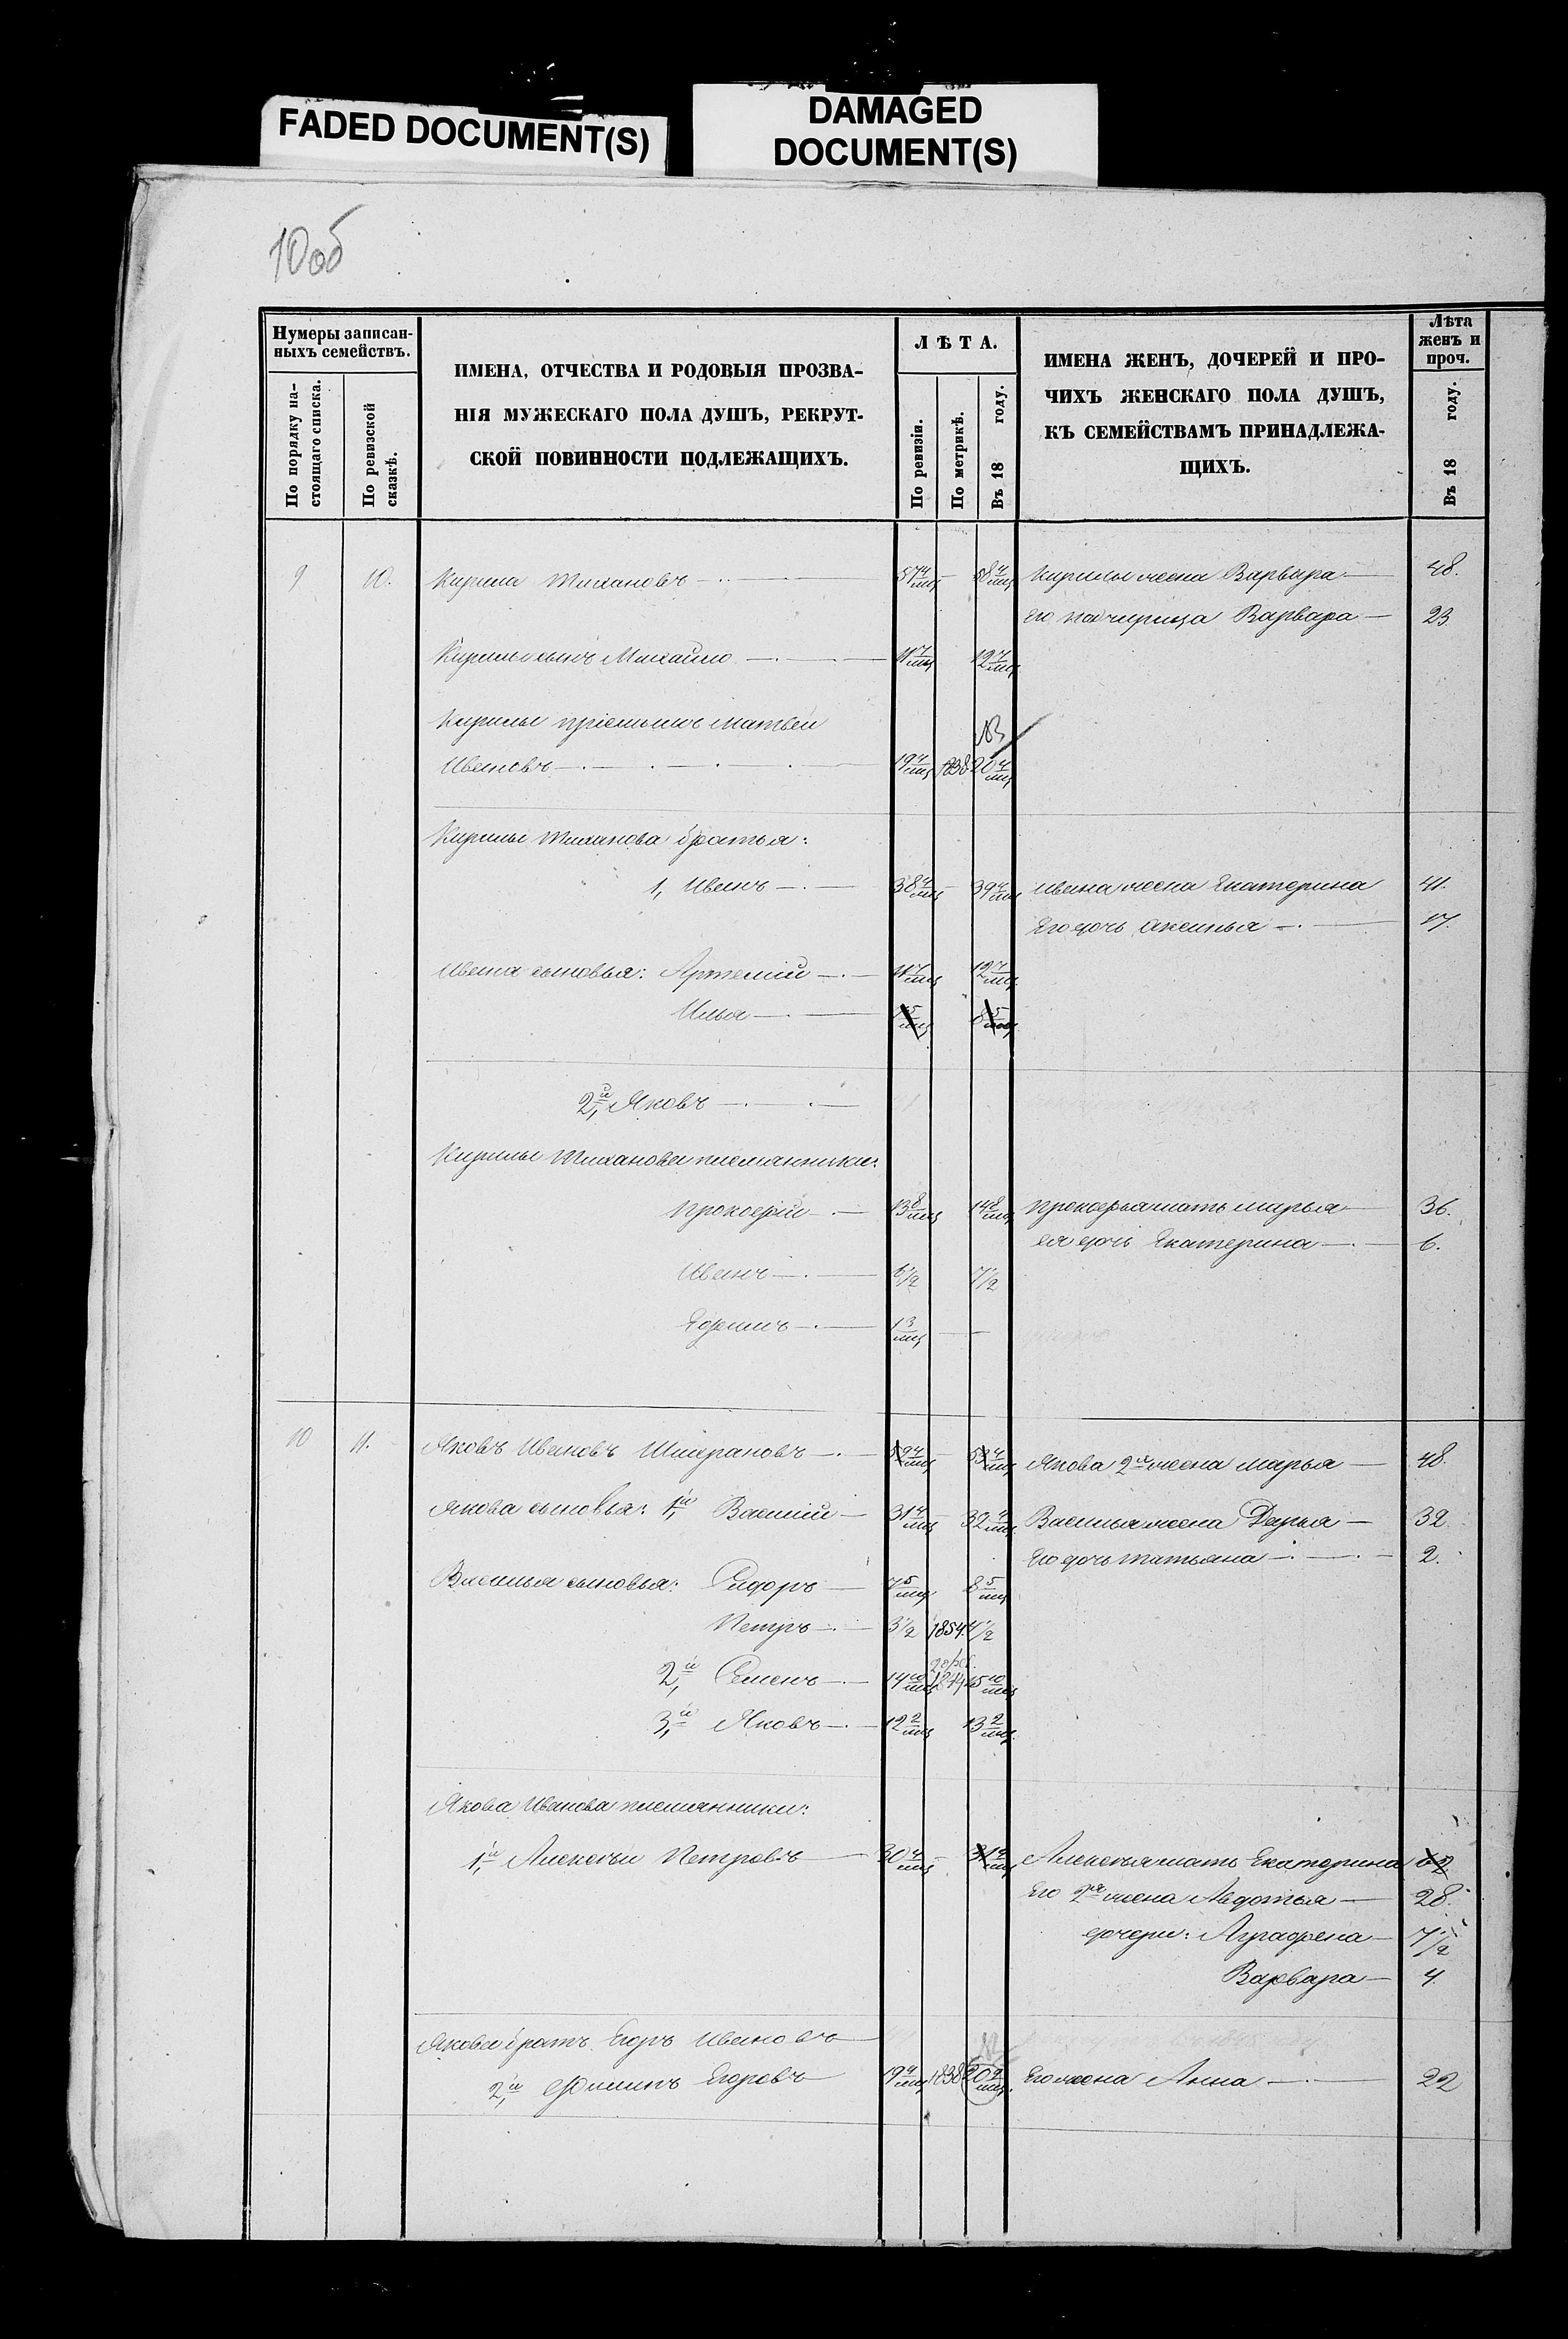 FADED DOCUMENT(S)
DAMAGED
DOCUMENT(S)
10об
Нумеры записан-
ныхъ семействъ.
По порядку на-
стоящаго списка.
По ревизской
сказкѣ.
ИМЕНА, ОТЧЕСТВА И РОДОВЫЯ ПРОЗВА-
НІЯ МУЖЕСКАГО ПОЛА ДУШЪ, РЕКРУТ-
СКОЙ ПОВИННОСТИ ПОДЛЕЖАЩИХЪ.
ЛѢТА.
По ревизіи.
По метрикѣ.
Въ 18 году.
ИМЕНА ЖЕНЪ, ДОЧЕРЕЙ И ПРО-
ЧИХЪ ЖЕНСКАГО ПОЛА ДУШЪ,
КЪ СЕМЕЙСТВАМЪ ПРИНАДЛЕЖА-
ЩИХЪ.
Лѣта
женъ и
проч.
Въ 18 году.
9 10. Кирила Тихановъ 57 4/мц 58 4/мц Кирилы жена Варвара 48.
Его падчерица Варвара 23
Кирилы сынъ Михайло 11 7/мц 12 7/мц
Кирилы пріемышъ Матвѣй
Ивановъ 19 4/мц 1838 20 4/мц
Кирилы Тиханова братья:
1, Иванъ 38 4/мц 39 4/мц Ивана жена Екатерина 41.
Его дочь Аксинья 17.
Ивана сыновья: Артемій 11 7/мц 12 7/мц
Илья 7 5/мц 8 5/мц
2й, Яковъ
Кирилы Тиханова племянники:
Прокофій 13 8/мц 14 8/мц Прокофья мать Марья 36.
ея дочь Екатерина 6.
Иванъ 6 1/2 7 1/2
Ефимъ 1 3/мц
10 11. Яковъ Ивановъ 4/мц 4/мц Якова 2я жена Марья 48.
Якова сыновья: 1й, Василій 31 4/мц 32 4/мц Василья жена Дарья 32.
Его дочь Татьяна 2.
Василья сыновья: Сидоръ 7 5/мц 8 5/мц
Петръ 3 1/2 1854 4 1/2
2й, Семенъ 14 10/мц 1844 15 10/мц
3й, Яковъ 12 2/мц 13 2/мц
Якова Иванова племянники:
1й, Алексѣй Петровъ 30 4/мц 31 4/мц Алексѣя мать Екатерина 62
Его 2я жена Авдотья 28.
дочери: Аграфена 7 1/2
Варвара 4
Якова братъ Егоръ Ивановъ
2й, Филипъ Егоровъ 19 4/мц 1838 20 4/мц Его жена Анна 22